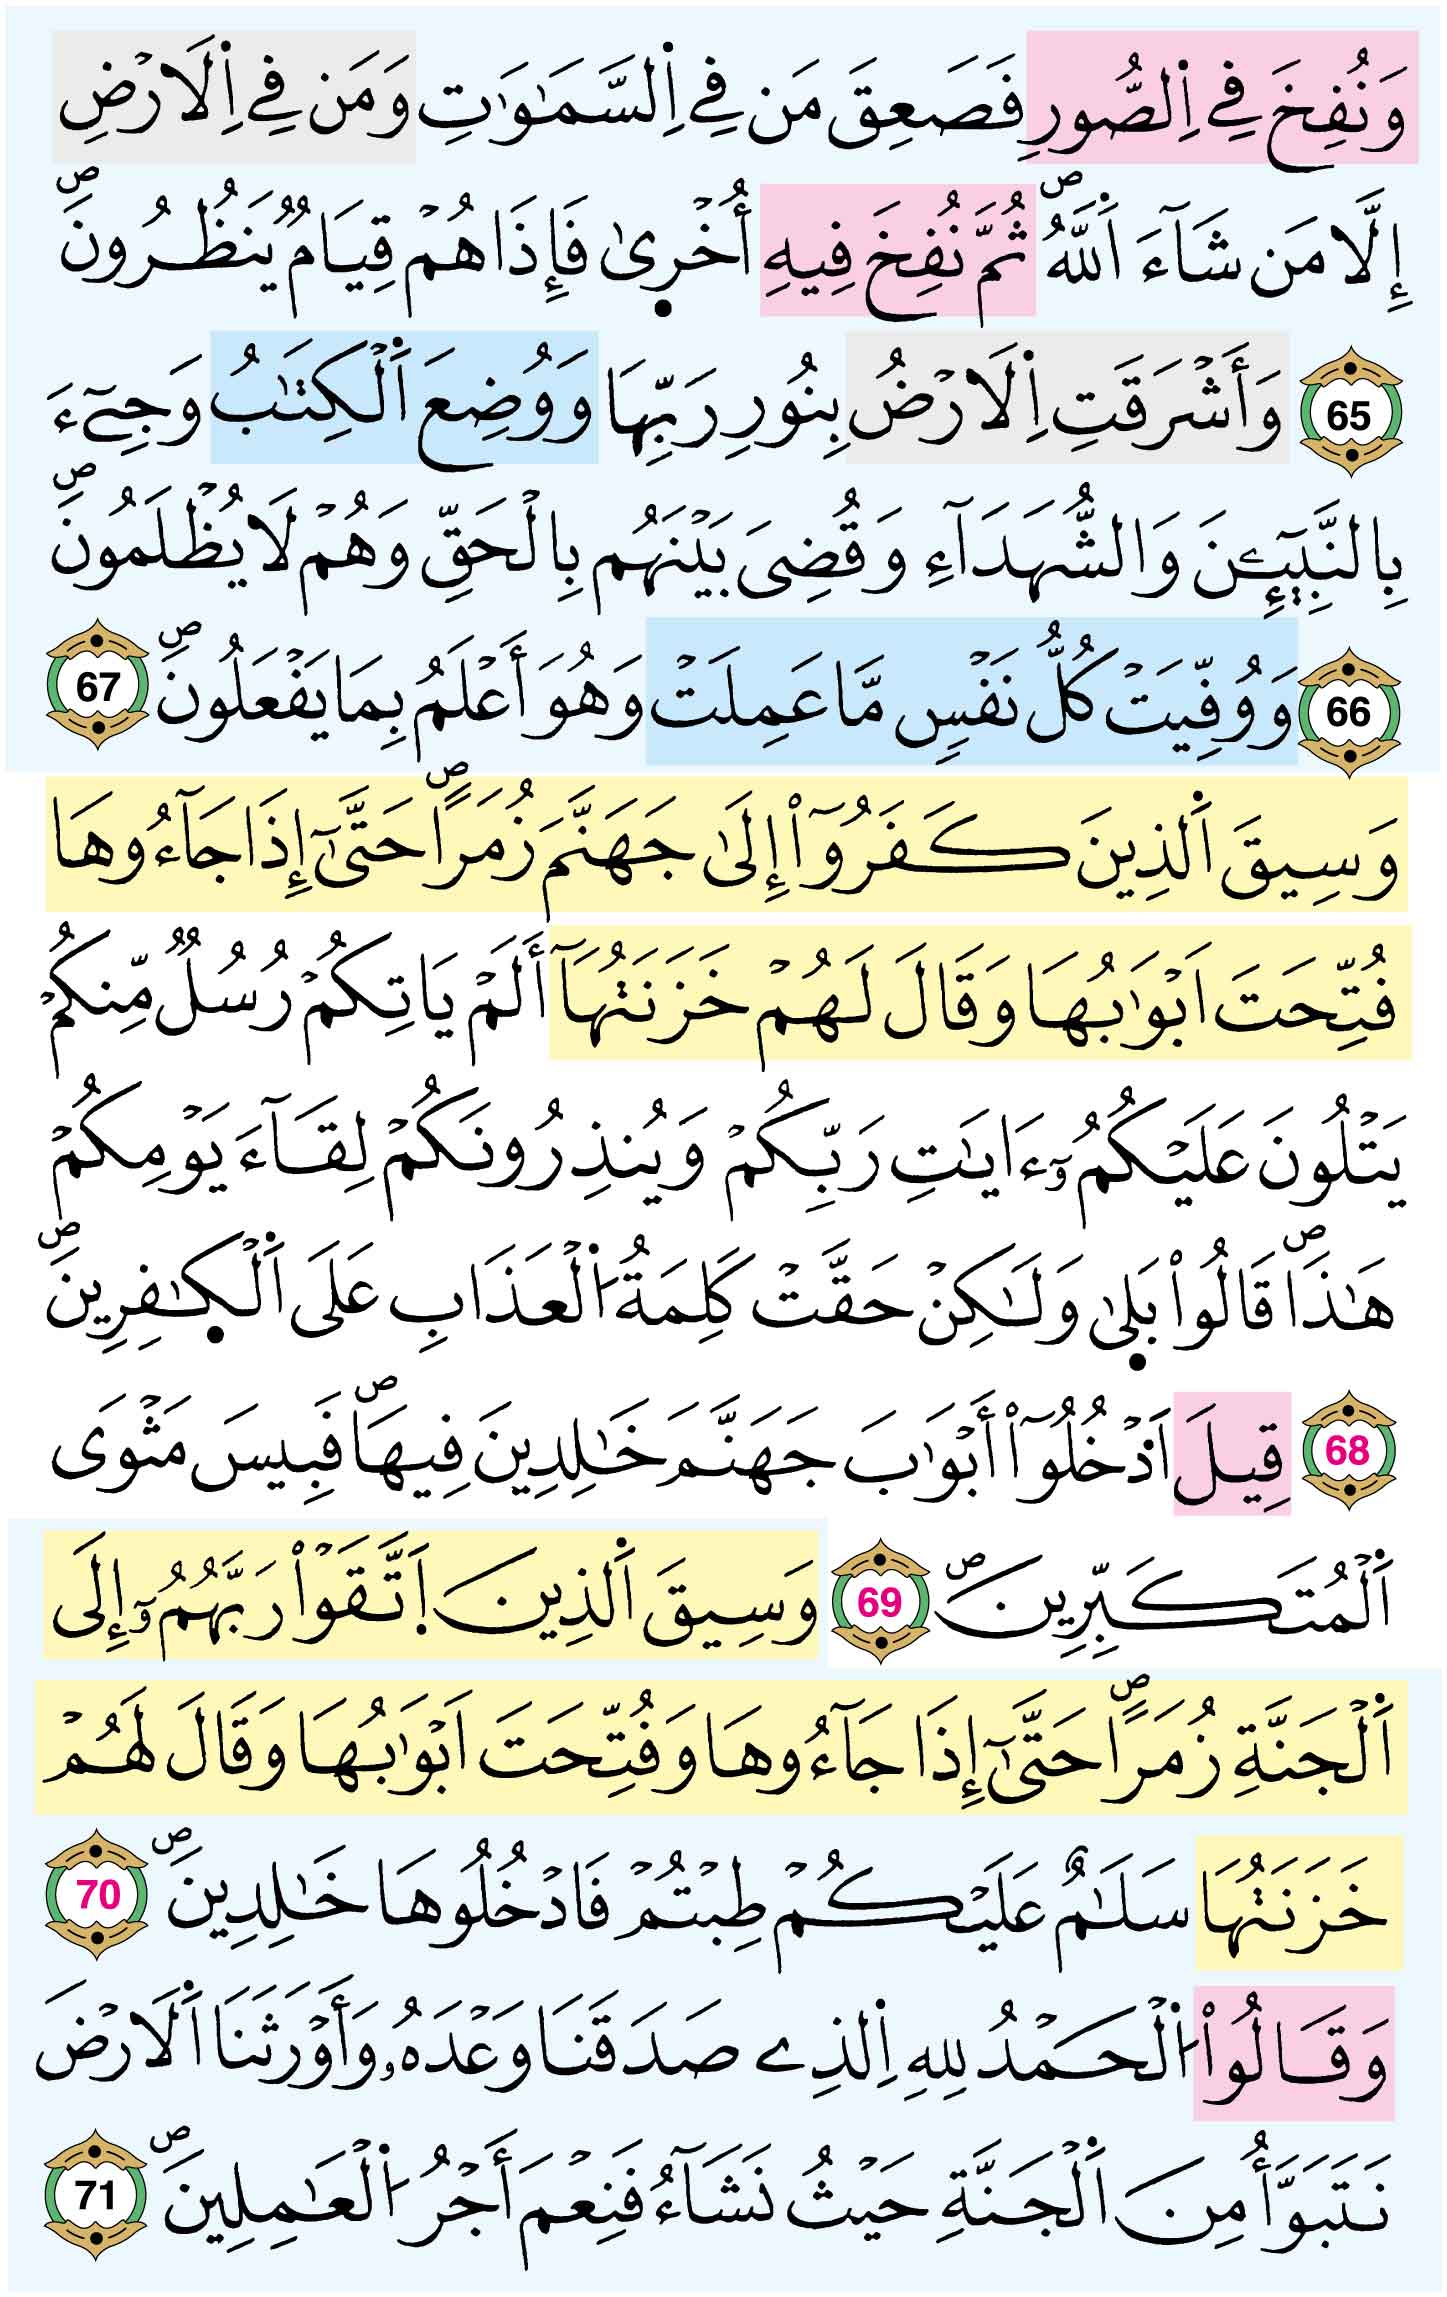 وَنُفِخَ فِے اِ۬لصُّورِ فَصَعِقَ مَن فِے اِ۬لسَّمَٰوَٰتِ وَمَن فِے اِ۬لَارْضِ
إِلَّا مَن شَآءَ اَ۬للَّهُۖ ثُمَّ نُفِخَ فِيهِ أُخْر۪يٰ فَإِذَا هُمْ قِيَامٞ يَنظُرُونَۖ
65 وَأَشْرَقَتِ اِ۬لَارْضُ بِنُورِ رَبِّهَا وَوُضِعَ اَ۬لْكِتَٰبُ وَجِےٓءَ
بِالنَّبِيٓـِٕينَ وَالشُّهَدَآءِ وَقُضِيَ بَيْنَهُم بِالْحَقِّ وَهُمْ لَا يُظْلَمُونَۖ
66 وَوُفِّيَتْ كُلُّ نَفْسٖ مَّا عَمِلَتْ وَهُوَ أَعْلَمُ بِمَا يَفْعَلُونَۖ 67
وَسِيقَ اَ۬لذِينَ كَفَرُوٓاْ إِلَىٰ جَهَنَّمَ زُمَراًۖ حَتَّىٰٓ إِذَا جَآءُوهَا
فُتِّحَتَ اَبْوَٰبُهَا وَقَالَ لَهُمْ خَزَنَتُهَآ أَلَمْ يَاتِكُمْ رُسُلٞ مِّنكُمْ
يَتْلُونَ عَلَيْكُمُۥٓ ءَايَٰتِ رَبِّكُمْ وَيُنذِرُونَكُمْ لِقَآءَ يَوْمِكُمْ
هَٰذَاۖ قَالُواْ بَل۪يٰ وَلَٰكِنْ حَقَّتْ كَلِمَةُ اُ۬لْعَذَابِ عَلَى اَ۬لْكٰ۪فِرِينَۖ
68 قِيلَ اَ۟دْخُلُوٓاْ أَبْوَٰبَ جَهَنَّمَ خَٰلِدِينَ فِيهَاۖ فَبِيسَ مَثْوَى
اَ۬لْمُتَكَبِّرِينَۖ 69 وَسِيقَ اَ۬لذِينَ اَ۪تَّقَوْاْ رَبَّهُمُۥٓ إِلَى
اَ۬لْجَنَّةِ زُمَراًۖ حَتَّىٰٓ إِذَا جَآءُوهَا وَفُتِّحَتَ اَبْوَٰبُهَا وَقَالَ لَهُمْ
خَزَنَتُهَا سَلَٰمٌ عَلَيْكُمْ طِبْتُمْ فَادْخُلُوهَا خَٰلِدِينَۖ 70
وَقَالُواْ اُ۬لْحَمْدُ لِلهِ اِ۬لذِے صَدَقَنَا وَعْدَهُۥ وَأَوْرَثَنَا اَ۬لَارْضَ
نَتَبَوَّأُ مِنَ اَ۬لْجَنَّةِ حَيْثُ نَشَآءُ فَنِعْمَ أَجْرُ اُ۬لْعَٰمِلِينَۖ 71